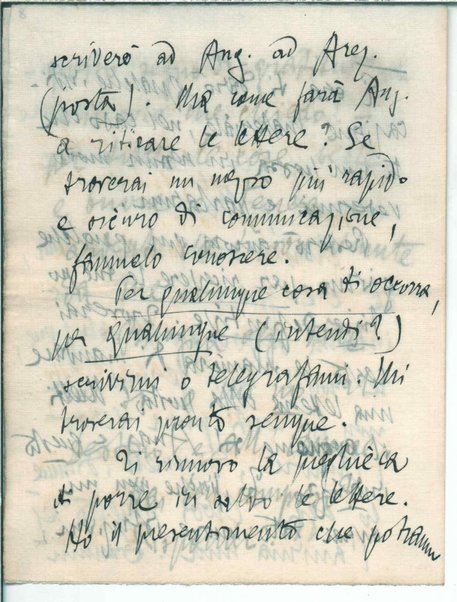 scriverò ad Ang. ad Arez.
(posta). Ma come farà Ang.
a ritirare le lettere? Se
troverai un mezzo più rapido
e sicuro di comunicazione,
fammelo conoscere.
Per qualunque cosa ti occorra,
per qualunque (intendi?)
scrivimi o telegrafami. Mi
troverai pronto sempre.
Ti rinnovo la preghiera
di porre in salvo le lettere.
Ho il presentimento che potranno